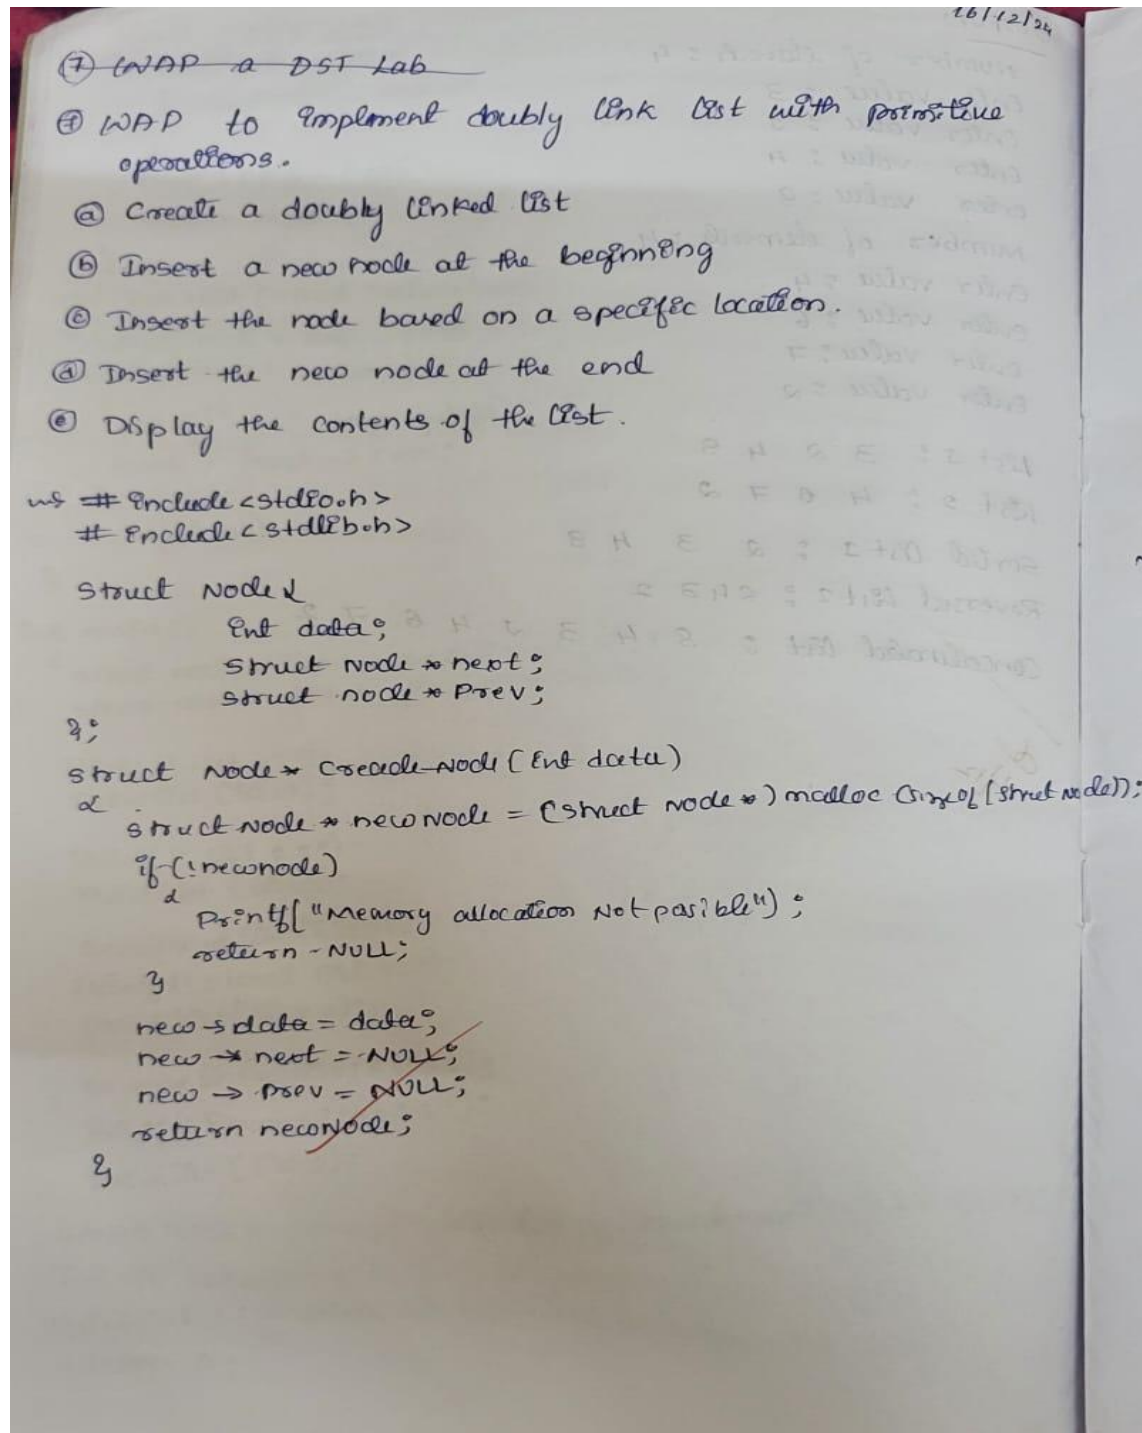 16/12/24
⑦ WAP a DST Lab
⑦ WAP to implement doubly link list with primitive
operations.
ⓐ Create a doubly linked list
ⓑ Insert a new node at the beginning
ⓒ Insert the node based on a specific location.
ⓓ Insert the new node at the end
ⓔ Display the contents of the list.
# include <stdio.h>
# include <stdlib.h>
struct Node {
int data;
struct Node * next;
struct node * Prev;
};
struct Node * Create Node (int data)
{
struct Node * newNode = (struct node *) malloc (sizeof (struct node));
if (!newnode)
{
Printf("Memory allocation Not pasible");
return NULL;
}
new → data = data;
new → next = NULL;
new → prev = NULL;
return newNode;
}